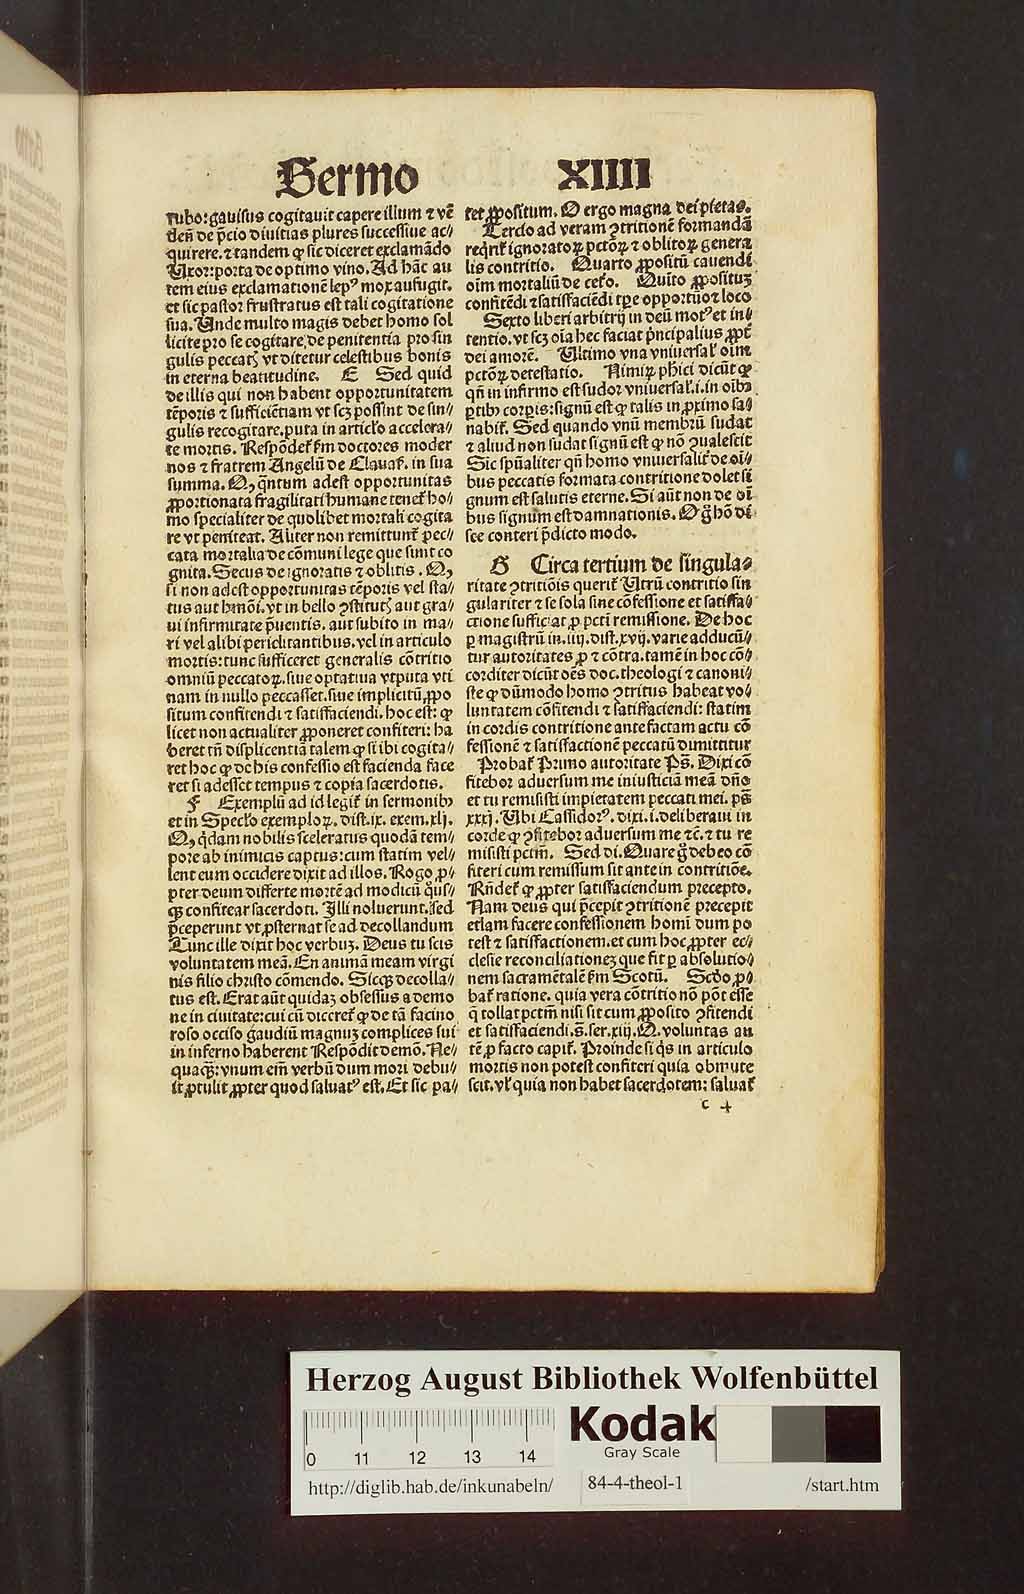 Sermo XIIII
rubo: gauisus cogitauit capere illum ⁊ vē
dēs de p̄cio diuitias plures successiue ac⸗
quirere. ⁊ tandem ꝙ sic diceret exclamādo
Uxor: porta de optimo vino. Ad hāc au
tem eius exclamationē lepꝰ mox aufugit.
et sic pastor frustratus est tali cogitatione
sua. Unde multo magis debet homo sol
licite pro se cogitare, de penitentia pro sin
gulis peccatꝭ vt ditetur celestibus bonis
in eterna beatitudine. E Sed quid
de illis qui non habent opportunitatem
tēporis ⁊ sufficiētiam vt scꝫ possint de sin⸗
gulis recogitare. puta in articlo accelera⸗
te mortis. Respōdet̃ ẜm doctores moder
nos ⁊ fratrem Angelū de Clauas̃. in sua
summa. Q, q̄ntum adest opportunitas
ꝓportionata fragilitati humane tenet̃ ho⸗
mo specialiter de quolibet mortali cogita
re vt peniteat. Aliter non remittunt̃ pec⸗
cata mortalia de cōmuni lege que sunt co
gnita. Secus de ignoratis ⁊ oblitis. Q,
si non adest opportunitas tēporis vel sta⸗
tus aut hmōi. vt in bello ↄstitutꝭ aut gra⸗
ui infirmitate p̄uentis. aut subito in ma⸗
ri vel alibi periclitantibus. vel in articulo
mortis: tunc sufficeret generalis cōtritio
omniū peccatoꝝ. siue optatiua vtputa vti
nam in nullo peccasset. siue implicitū ꝓpo
situm confitendi ⁊ satisfaciendi. hoc est: ꝙ
licet non actualiter ꝓponeret confiteri: ha
beret tn̄ displicentiā talem ꝙ si ibi cogita⸗
ret hoc ꝙ de his confessio est facienda face
ret si adesset tempus ⁊ copia sacerdotis.
F Exemplū ad id legit̃ in sermonibꝰ
et in Speclo exemploꝝ. dist. ix. exem. xlj.
Q, q̇dam nobilis sceleratus quodā tem⸗
pore ab inimicis captus: cum statim vel⸗
lent eum occidere dixit ad illos. Rogo ꝓ⸗
pter deum differte mortē ad modicū q̊us⸗
qꝫ confitear sacerdoti. Illi noluerunt. sed
p̄ceperunt vt ꝓsternat se ad decollandum
Tunc ille dixit hoc verbuꝫ. Deus tu scis
voluntatem meā. En animā meam virgi
nis filio christo cōmendo. Sicqꝫ decolla⸗
tus est. Erat aūt quidaꝫ obsessus a demo
ne in ciuitate: cui cū diceret̃ ꝙ de tā facino
roso occiso gaudiū magnuꝫ complices sui
in inferno haberent Respōdit demō. Ne⸗
quaqꝫ: vnum eim̄ verbū dum mori debu⸗
it ꝓtulit ꝓpter quod saluatꝰ est. Et sic pa⸗
tet ꝓpositum. O ergo magna dei pietas.
Tercio ad veram ↄtritionē formandā
reqrit̃ ignoratoꝝ pctōꝝ ⁊ oblitoꝝ genera
lis contritio. Quarto ꝓpositū cauendi
oīm mortaliū de cetō. Quīto ꝓpositūꝫ
confitēdi ⁊ satisfaciēdi tꝑe opportuō ⁊ loco
Sexto liberi arbitrij in deū motꝰ et in⸗
tentio. vt scꝫ oīa hec faciat p̄ncipalius ꝓpt̃
dei amorē. Ultimo vna vniuersal̃ oīm
pctōꝝ detestatio. Nimiꝝ phici dicūt ꝙ
qn̄ in infirmo est sudor vniuersal̃. i. in oībꝰ
ꝑtibꝰ corꝑis: signū est ꝙ talis in ꝓximo sa⸗
nabit̃. Sed quando vnū membrū sudat
⁊ aliud non sudat signū est ꝙ nō ↄualescit
Sic spūaliter qn̄ homo vniuersalit̃ de oī⸗
bus peccatis formata contritione dolet si
gnum est salutis eterne. Si aūt non de oī
bus signum est damnationis. O g̊ hō di⸗
sce conteri p̄dicto modo.
G Circa tertium de singula⸗
ritate ↄtritiōis querit̃ Utrū contritio sin
gulariter ⁊ se sola sine cōfessione et satisfa⸗
ctione sufficiat ꝓ pcti remissione. De hoc
ꝑ magistrū in. iiij. dist. xvij. varie adducū⸗
tur autoritates ꝓ ⁊ cōtra. tamē in hoc cō⸗
corditer dicūt oēs doc. theologi ⁊ canoni⸗
ste ꝙ dūmodo homo ↄtritus habeat vo⸗
luntatem cōfitendi ⁊ satisfaciendi: statim
in cordis contritione ante factam actu cō
fessionē ⁊ satisfactionē peccatū dimittitur
Probat̃ Primo autoritate Ps̄. Dixi cō
fitebor aduersum me iniusticiā meā dn̄o
et tu remisisti impietatem peccati mei. ps̄
xxxj. Ubi Cassidorꝰ. dixi. i. deliberaui in
corde ꝙ ↄfitebor aduersum me ⁊c̄. ⁊ tu re
misisti pctm̄. Sed di. Quare g̊ debeo cō
fiteri cum remissum sit ante in contritiōe.
Rn̄det̃ ꝙ ꝓpter satisfaciendum precepto.
Nam deus qui p̄cepit ↄtritionē precepit
etiam facere confessionem homi dum po
test ⁊ satisfactionem. et cum hoc ꝓpter ec⸗
clesie reconciliationeꝫ que fit ꝑ absolutio⸗
nem sacramētalē ẜm Scotū. Scd̄o ꝓ⸗
bat̃ ratione. quia vera cōtritio nō pōt esse
q̇ tollat pctm̄ nisi sit cum ꝓposito ↄfitendi
et satisfaciendi. s̄. ser. xiij. Q. voluntas au
tē ꝓ facto capit̃. Proinde si q̇s in articulo
mortis non potest confiteri quia obmute
scit. vl̃ quia non habet sacerdotem: saluat̃
c 4
Herzog August Bibliothek Wolfenbüttel
0 11 12 13 14
Kodak
Gray Scale
http://diglib.hab.de/inkunabeln/ 84-4-theol-1 /start.htm